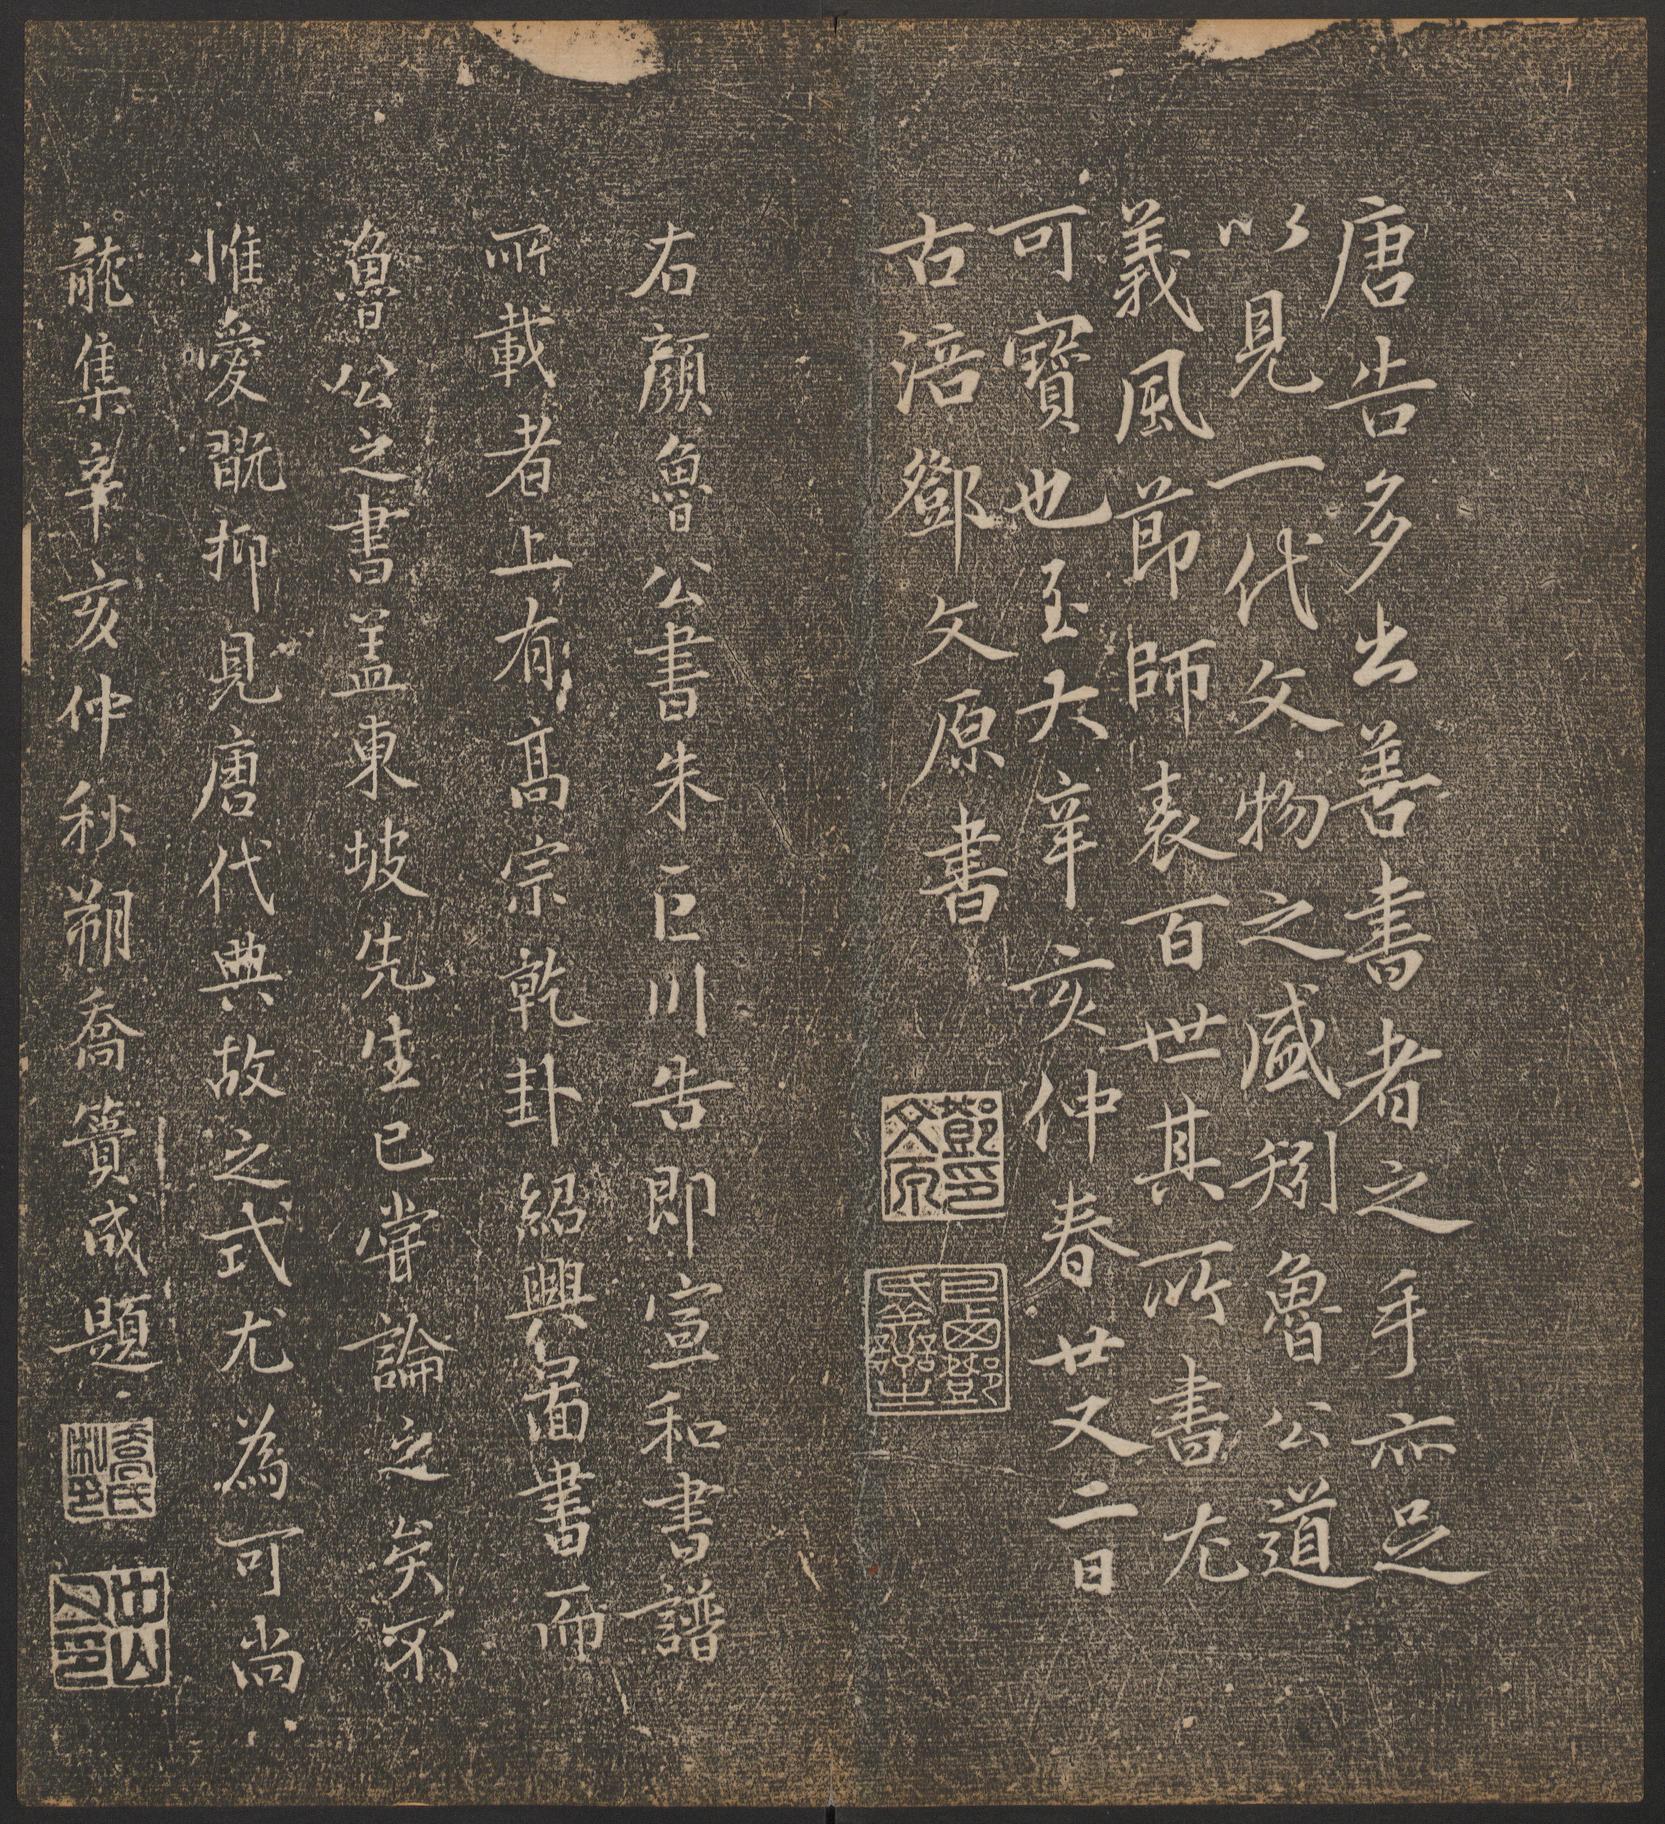 唐告多出善書者之手亦足
以見一代文物之盛矧魯公道
義風節師表百世其所書尤
可寶也至大辛亥仲春廿又二日
古涪鄧文原書
鄧印文原
巴西鄧氏善之
右顏魯公書朱巨川告即宣和書譜
所載者上有高宗乾卦紹興啚書而
魯公之書盖東坡先生已嘗論之矣不
惟愛翫抑見唐代典故之式尤為可尚
龍集辛亥仲秋朔喬簣成題
喬氏
中山